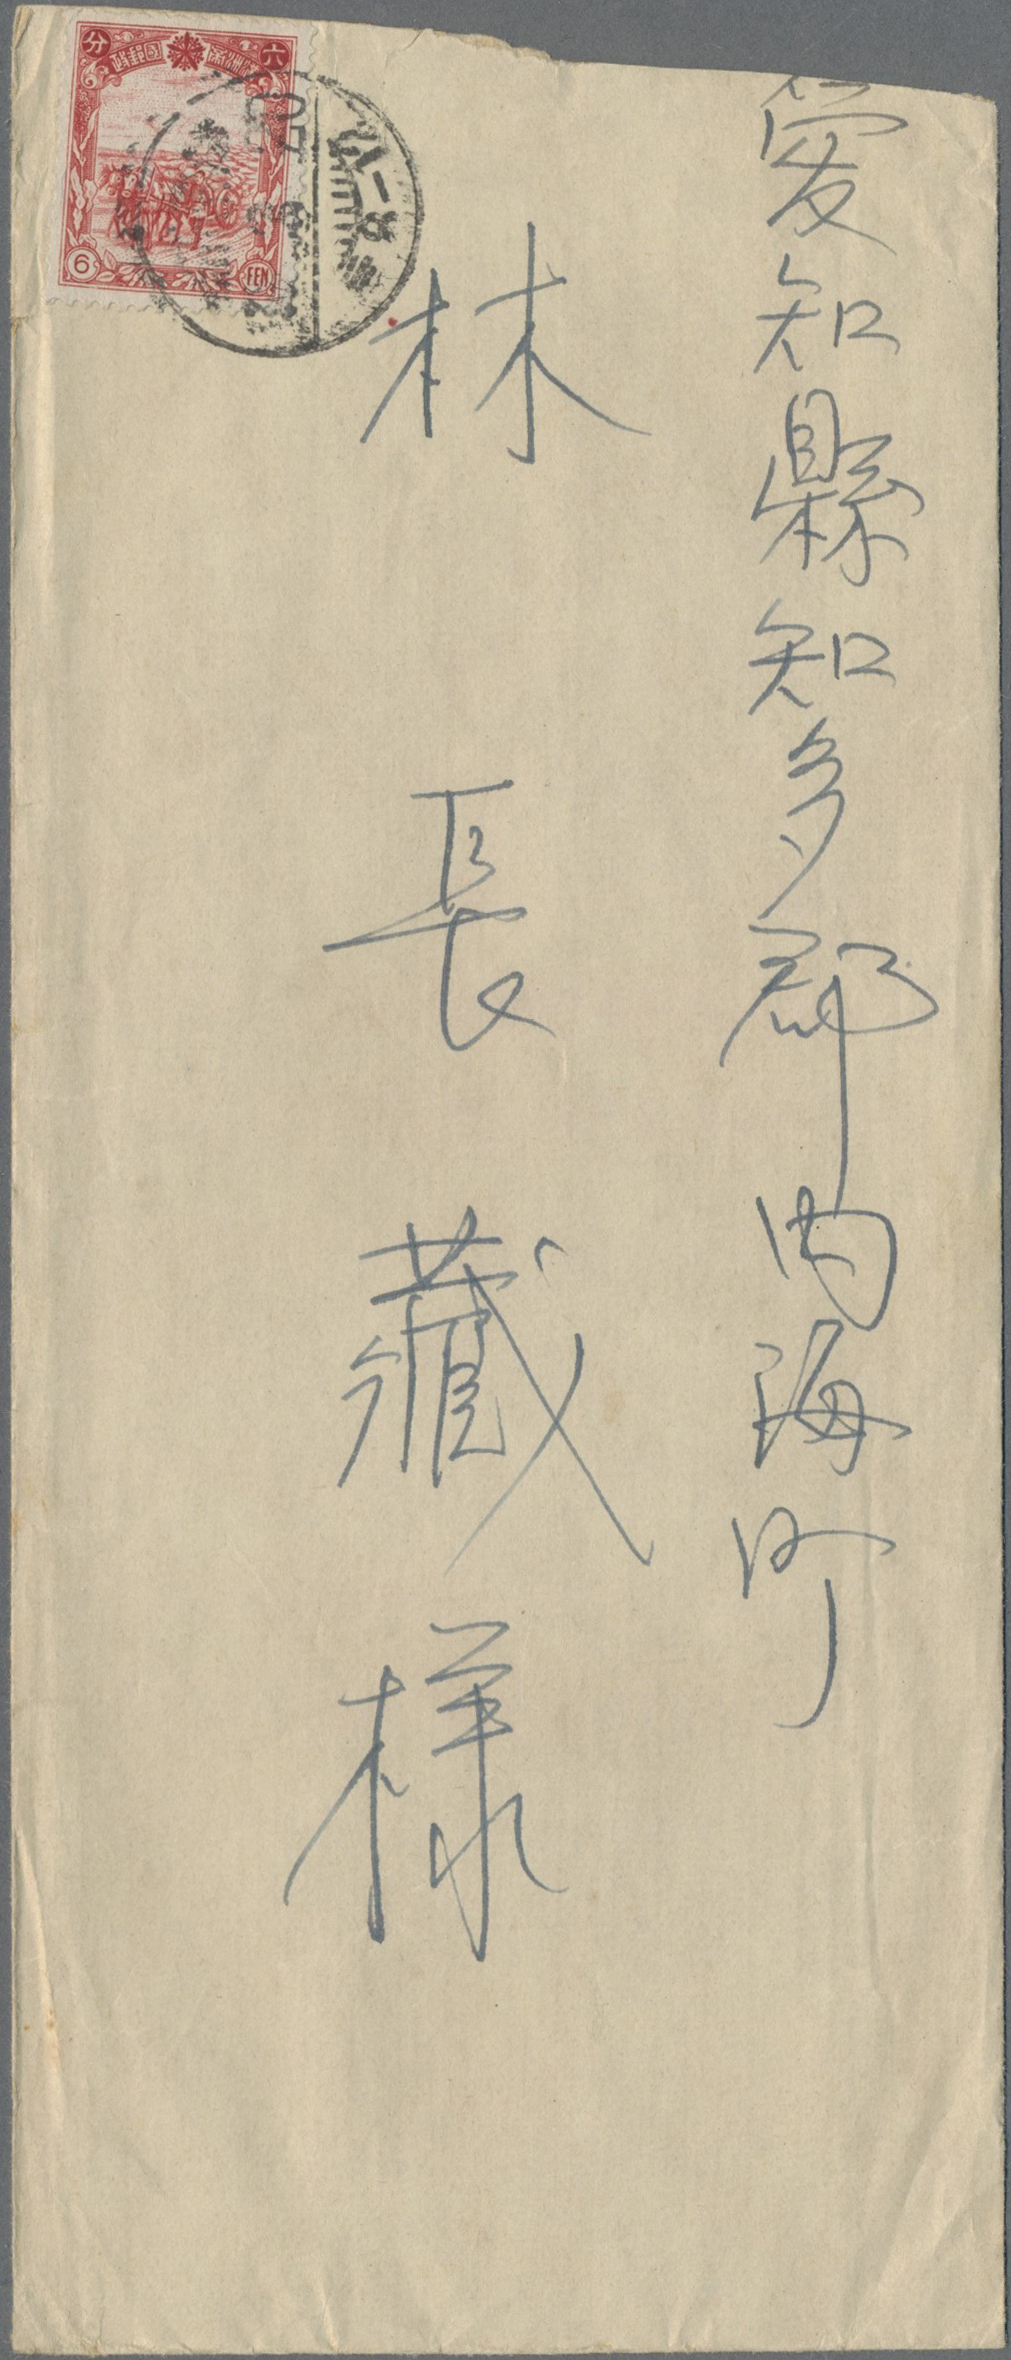 愛知縣知多郡内海町
林長藏様
分 政郵國洲滿 六
6 FEN